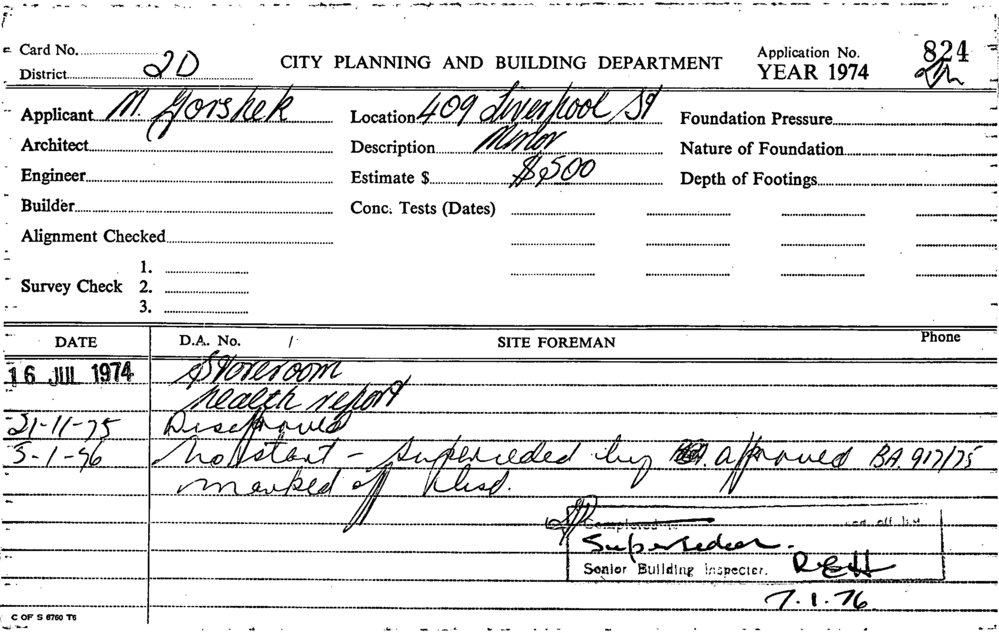 Card No.
District 2D
CITY PLANNING AND BUILDING DEPARTMENT
Application No. 824
YEAR 1974
Applicant M. Gorshek
Location 409 Liverpool St
Foundation Pressure
Architect
Description Minor
Nature of Foundation
Engineer
Estimate $ $500
Depth of Footings
Builder
Conc. Tests (Dates)
Alignment Checked
Survey Check
1.
2.
3.
DATE D.A. No. / SITE FOREMAN Phone
16 JUL 1974 Storeroom
health report
21-11-75 Disapproved
5-1-76 No start - superceded by approved BA. 917/75
marked off
Completed
Superseded.
Senior Building Inspector. REH
7.1.76.
C OF S 6760 T6